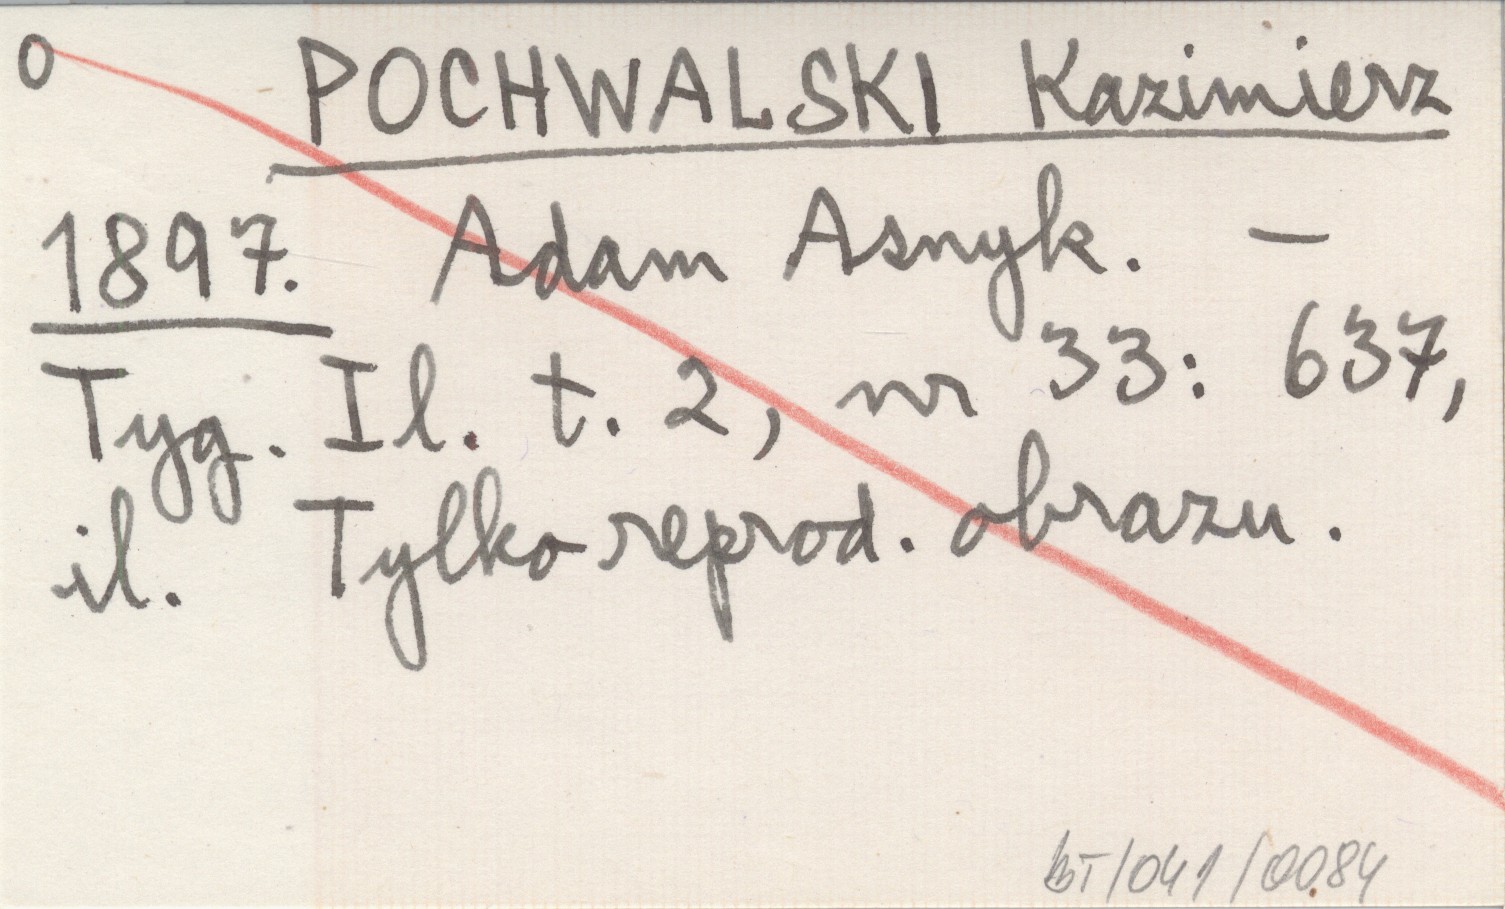 O POCHWALSKI Kazimierz
1897. Adam Asnyk. —
Tyg. Il. t. 2, nr 33: 637,
il. Tylko reprod. obrazu.
BT/041/0084